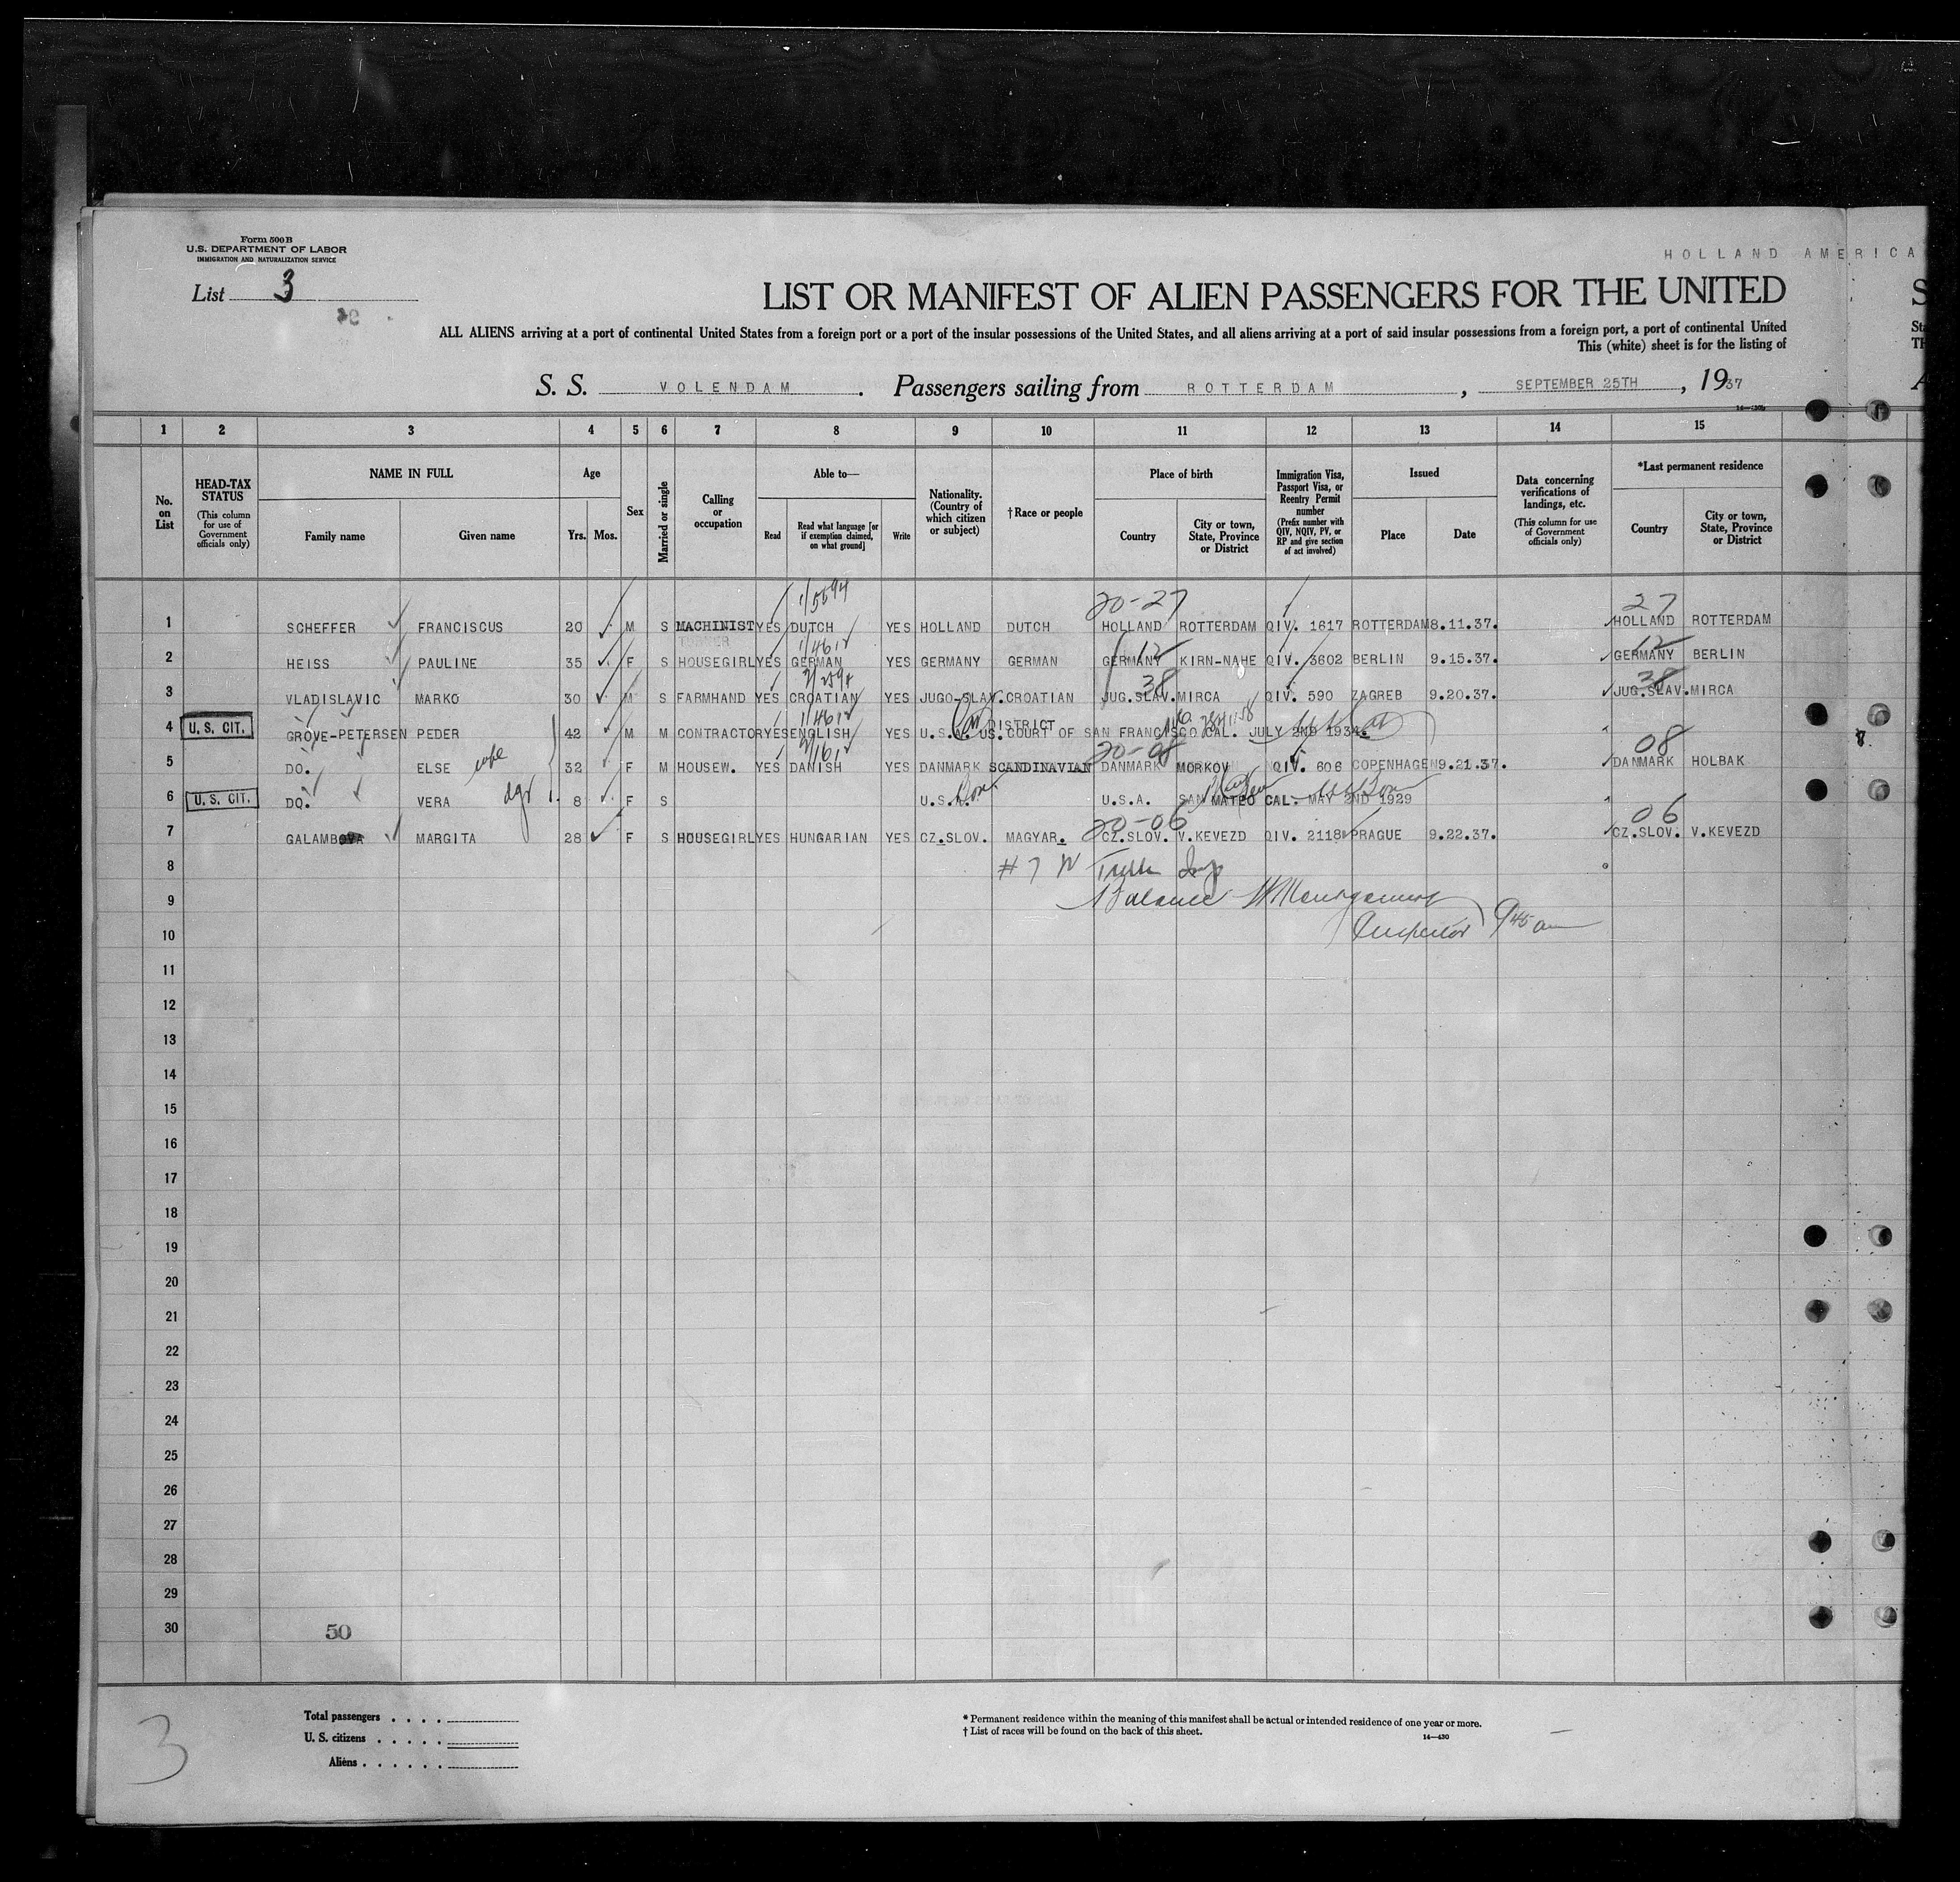 Form 500 B
U.S. DEPARTMENT OF LABOR
IMMIGRATION AND NATURALIZATION SERVICE
HOLLAND AMERICA
List 3
LIST OR MANIFEST OF ALIEN PASSENGERS FOR THE UNITED
ALL ALIENS arriving at a port of continental United States from a foreign port or a port of the insular possessions of the United States, and all aliens arriving at a port of said insular possessions from a foreign port, a port of continental United
This (white) sheet is for the listing of
S. S. VOLENDAM. Passengers sailing from ROTTERDAM, SEPTEMBER 25TH, 1937
1 2 3 4 5 6 7 8 9 10 11 12 13 14 15
No. on List
HEAD-TAX STATUS (This column for use of Government officials only)
NAME IN FULL
Family name Given name
Age
Yrs. Mos.
Sex
Married or single
Calling or occupation
Able to—
Read Read what language [or if exemption claimed, on what ground] Write
Nationality. (Country of which citizen or subject)
†Race or people
Place of birth
Country City or town, State, Province or District
Immigration Visa, Passport Visa, or Reentry Permit number (Prefix number with QIV, NQIV, PV, or RP and give section of act involved)
Issued
Place Date
Data concerning verifications of landings, etc. (This column for use of Government officials only)
*Last permanent residence
Country City or town, State, Province or District
20-27 27
1 SCHEFFER FRANCISCUS 20 M S MACHINIST YES DUTCH YES HOLLAND DUTCH HOLLAND ROTTERDAM QIV. 1617 ROTTERDAM 8.11.37. HOLLAND ROTTERDAM
12 12
2 HEISS PAULINE 35 F S HOUSEGIRL YES GERMAN YES GERMANY GERMAN GERMANY KIRN-NAHE QIV. 3602 BERLIN 9.15.37. GERMANY BERLIN
38 38
3 VLADISLAVIC MARKO 30 M S FARMHAND YES CROATIAN YES JUGO-SLAV. CROATIAN JUG.SLAV. MIRCA QIV. 590 ZAGREB 9.20.37. JUG.SLAV. MIRCA
4 U. S. CIT. GROVE-PETERSEN PEDER 42 M M CONTRACTOR YES ENGLISH YES U.S.A. US. DISTRICT COURT OF SAN FRANCISCO CAL. JULY 2ND 1934.
20-08 08
5 DO. ELSE wife 32 F M HOUSEW. YES DANISH YES DANMARK SCANDINAVIAN DANMARK MORKOV QIV. 606 COPENHAGEN 9.21.37. DANMARK HOLBAK
6 U. S. CIT. DO. VERA dgr 8 F S U.S.A. U.S.A. SAN MATEO CAL. MAY 2ND 1929
20-06 06
7 GALAMBOVA MARGITA 28 F S HOUSEGIRL YES HUNGARIAN YES CZ.SLOV. MAGYAR. CZ.SLOV. V.KEVEZD QIV. 2118 PRAGUE 9.22.37. CZ.SLOV. V.KEVEZD
8 # 7
9 Balance Montgomery
10 Inspector 9 45 am
11
12
13
14
15
16
17
18
19
20
21
22
23
24
25
26
27
28
29
30
50
3
Total passengers
U. S. citizens
Aliens
* Permanent residence within the meaning of this manifest shall be actual or intended residence of one year or more.
† List of races will be found on the back of this sheet.
14—430